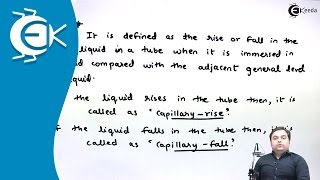 Ekeeda
It is defined as the rise or fall in the
liquid in a tube when it is immersed in
compared with the adjacent general level
the liquid rises in the tube then, it is
called as "Capillary-rise"
the liquid falls in the tube then, it is
called as "Capillary-fall"